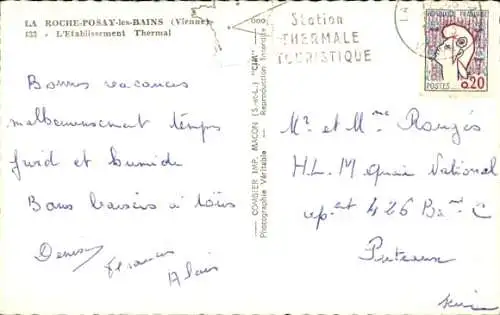 LA ROCHE-POSAY-les-BAINS (Vienne)
133 - L'Etablissement Thermal
Bonnes vacances
malheureusement temps
froid et humide
Bons baisers à tous
Denise
Francis
Alain
COMBIER IMP. MACON (S.-et-L.) "CIM"
Photographie Véritable - Reproduction Interdite
Station
THERMALE
TOURISTIQUE
REPUBLIQUE FRANÇAISE
POSTES 0,20
Mr et Mme Rougés
H.L.M Quai National
apt 426 Bat C
Puteaux
Seine